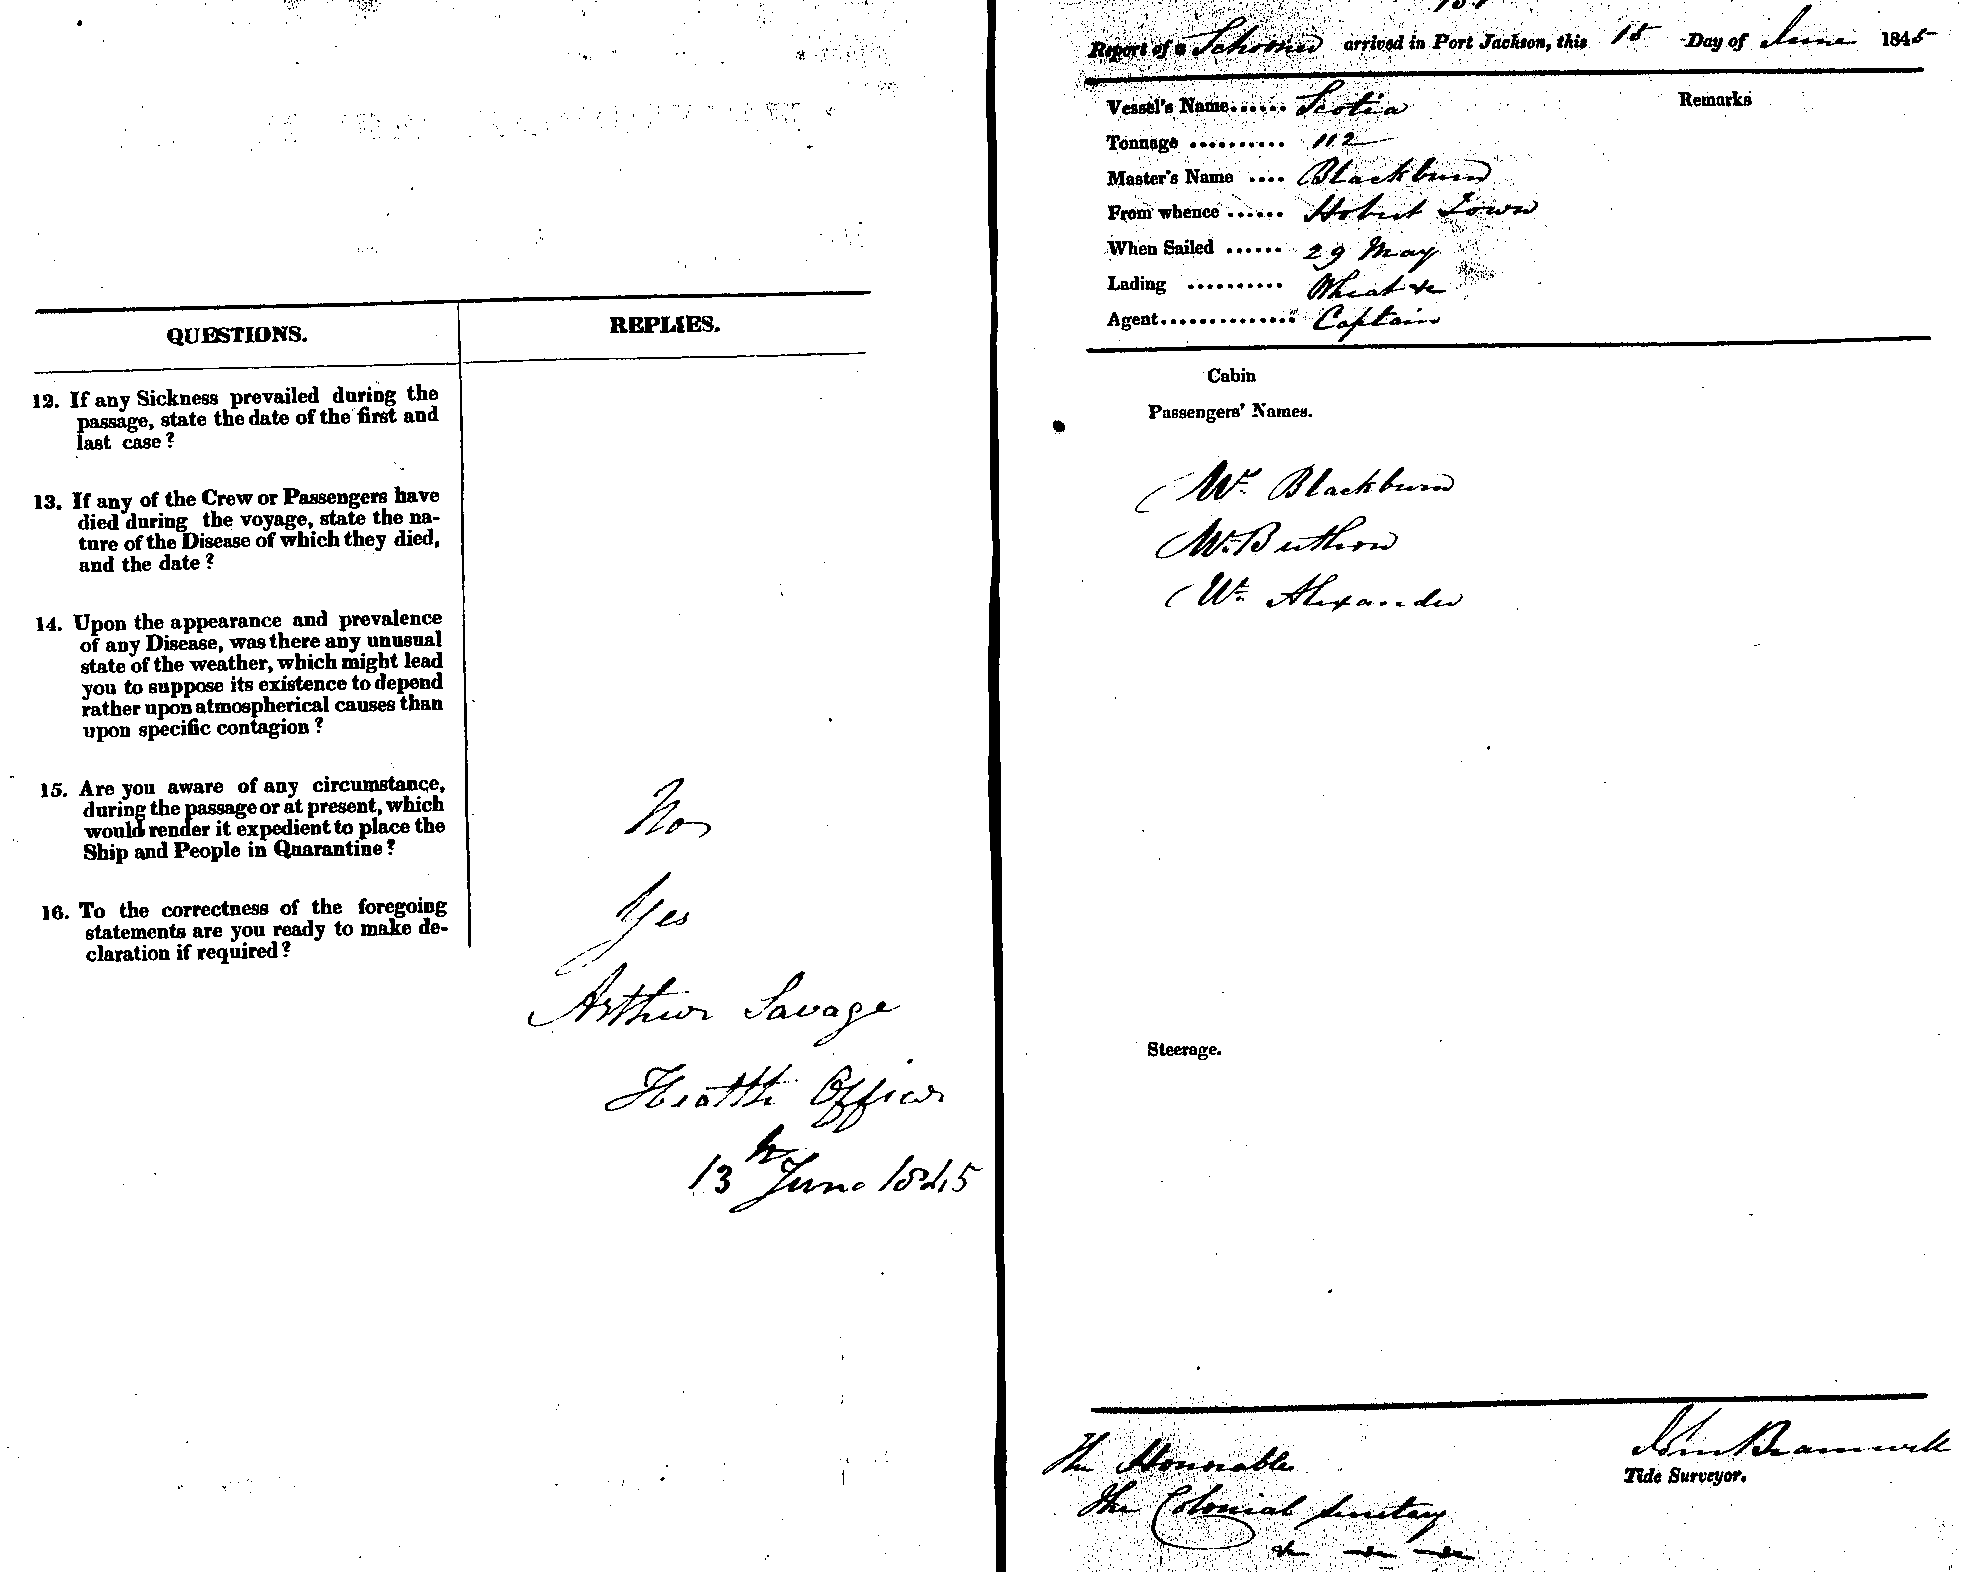 QUESTIONS.
REPLIES.
12. If any Sickness prevailed during the
passage, state the date of the first and
last case?
13. If any of the Crew or Passengers have
died during the voyage, state the na-
ture of the Disease of which they died,
and the date?
14. Upon the appearance and prevalence
of any Disease, was there any unusual
state of the weather, which might lead
you to suppose its existence to depend
rather upon atmospherical causes than
upon specific contagion?
15. Are you aware of any circumstance,
during the passage or at present, which
would render it expedient to place the
Ship and People in Quarantine?
No
16. To the correctness of the foregoing
statements are you ready to make de-
claration if required?
Yes
Arthur Savage
Health Officer
13th June 1845
Report of a Schooner arrived in Port Jackson, this Day of June 1845
Vessel's Name...... Scotia
Remarks
Tonnage .......... 112
Master's Name .... Blackburn
From whence ...... Hobart Town
When Sailed ...... 29 May
Lading .......... Wheat &c
Agent.............. Captain
Cabin
Passengers' Names.
Blackburn
Alexander
Steerage.
John Bramwell
Tide Surveyor.
The Honorable
The Colonial Secretary
&c &c &c